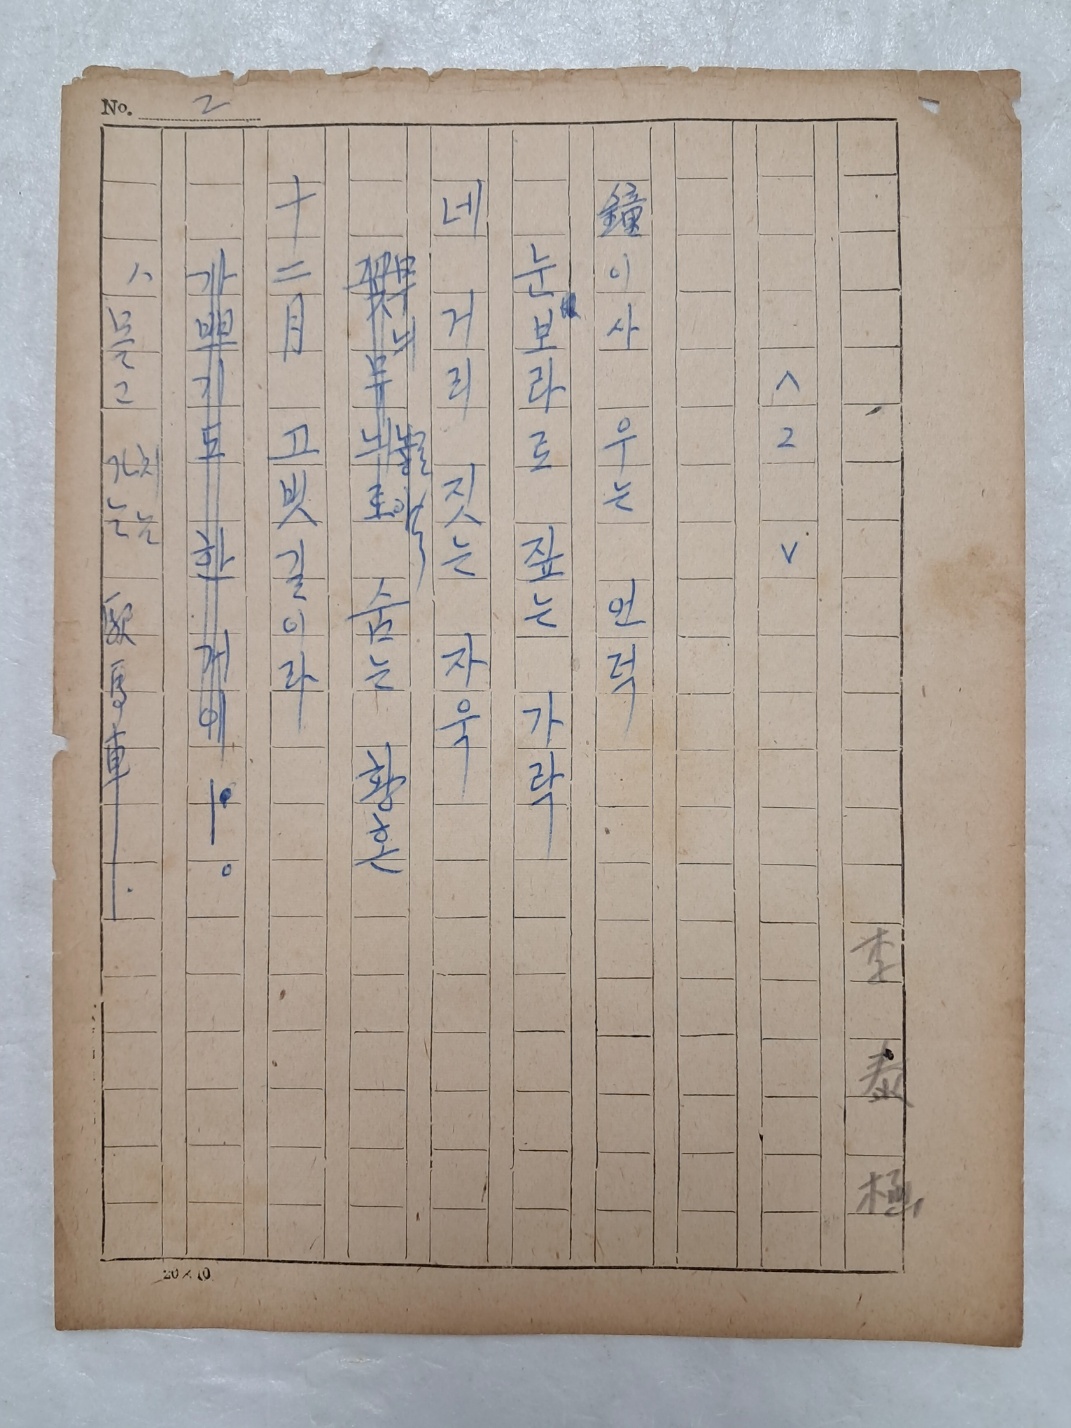 No. 2
李泰極
<2>
鐘이사 우는 언덕
눈보라로 짚는 가락
네 거리 짓는 자욱
숨는 황혼
十二月 고빗길이라
가쁘기도 한 게에!。
물고 가는
치는
馬車!
20×10